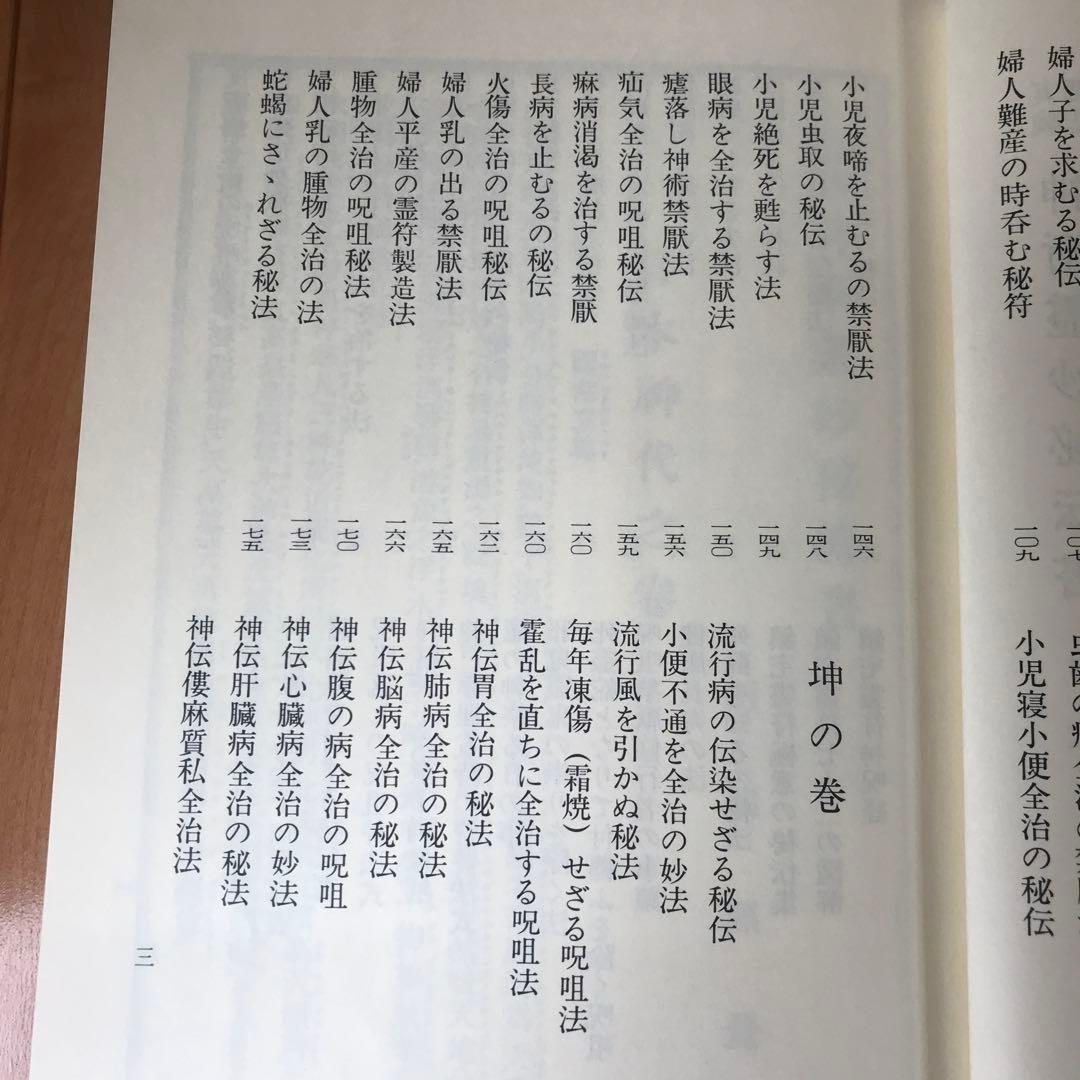 婦人子を求むる秘伝
婦人難産の時呑む秘符 一〇九
小児寝小便全治の秘伝
小児夜啼を止むるの禁厭法 一四六
小児虫取の秘伝 一四八
小児絶死を甦らす法 一四九
眼病を全治する禁厭法 一五〇
瘧落し神術禁厭法 一五六
疝気全治の呪咀秘伝 一五九
痳病消渇を治する禁厭 一六〇
長病を止むるの秘伝 一六〇
火傷全治の呪咀秘伝 一六二
婦人乳の出る禁厭法 一六五
婦人平産の霊符製造法 一六六
腫物全治の呪咀秘法 一七〇
婦人乳の腫物全治の法 一七三
蛇蝎にさゝれざる秘法 一七五
坤の巻
流行病の伝染せざる秘伝
小便不通を全治の妙法
流行風を引かぬ秘法
毎年凍傷（霜焼）せざる呪咀法
霍乱を直ちに全治する呪咀法
神伝胃全治の秘法
神伝肺病全治の秘法
神伝脳病全治の秘法
神伝腹の病全治の呪咀
神伝心臓病全治の妙法
神伝肝臓病全治の秘法
神伝僂麻質私全治法
三